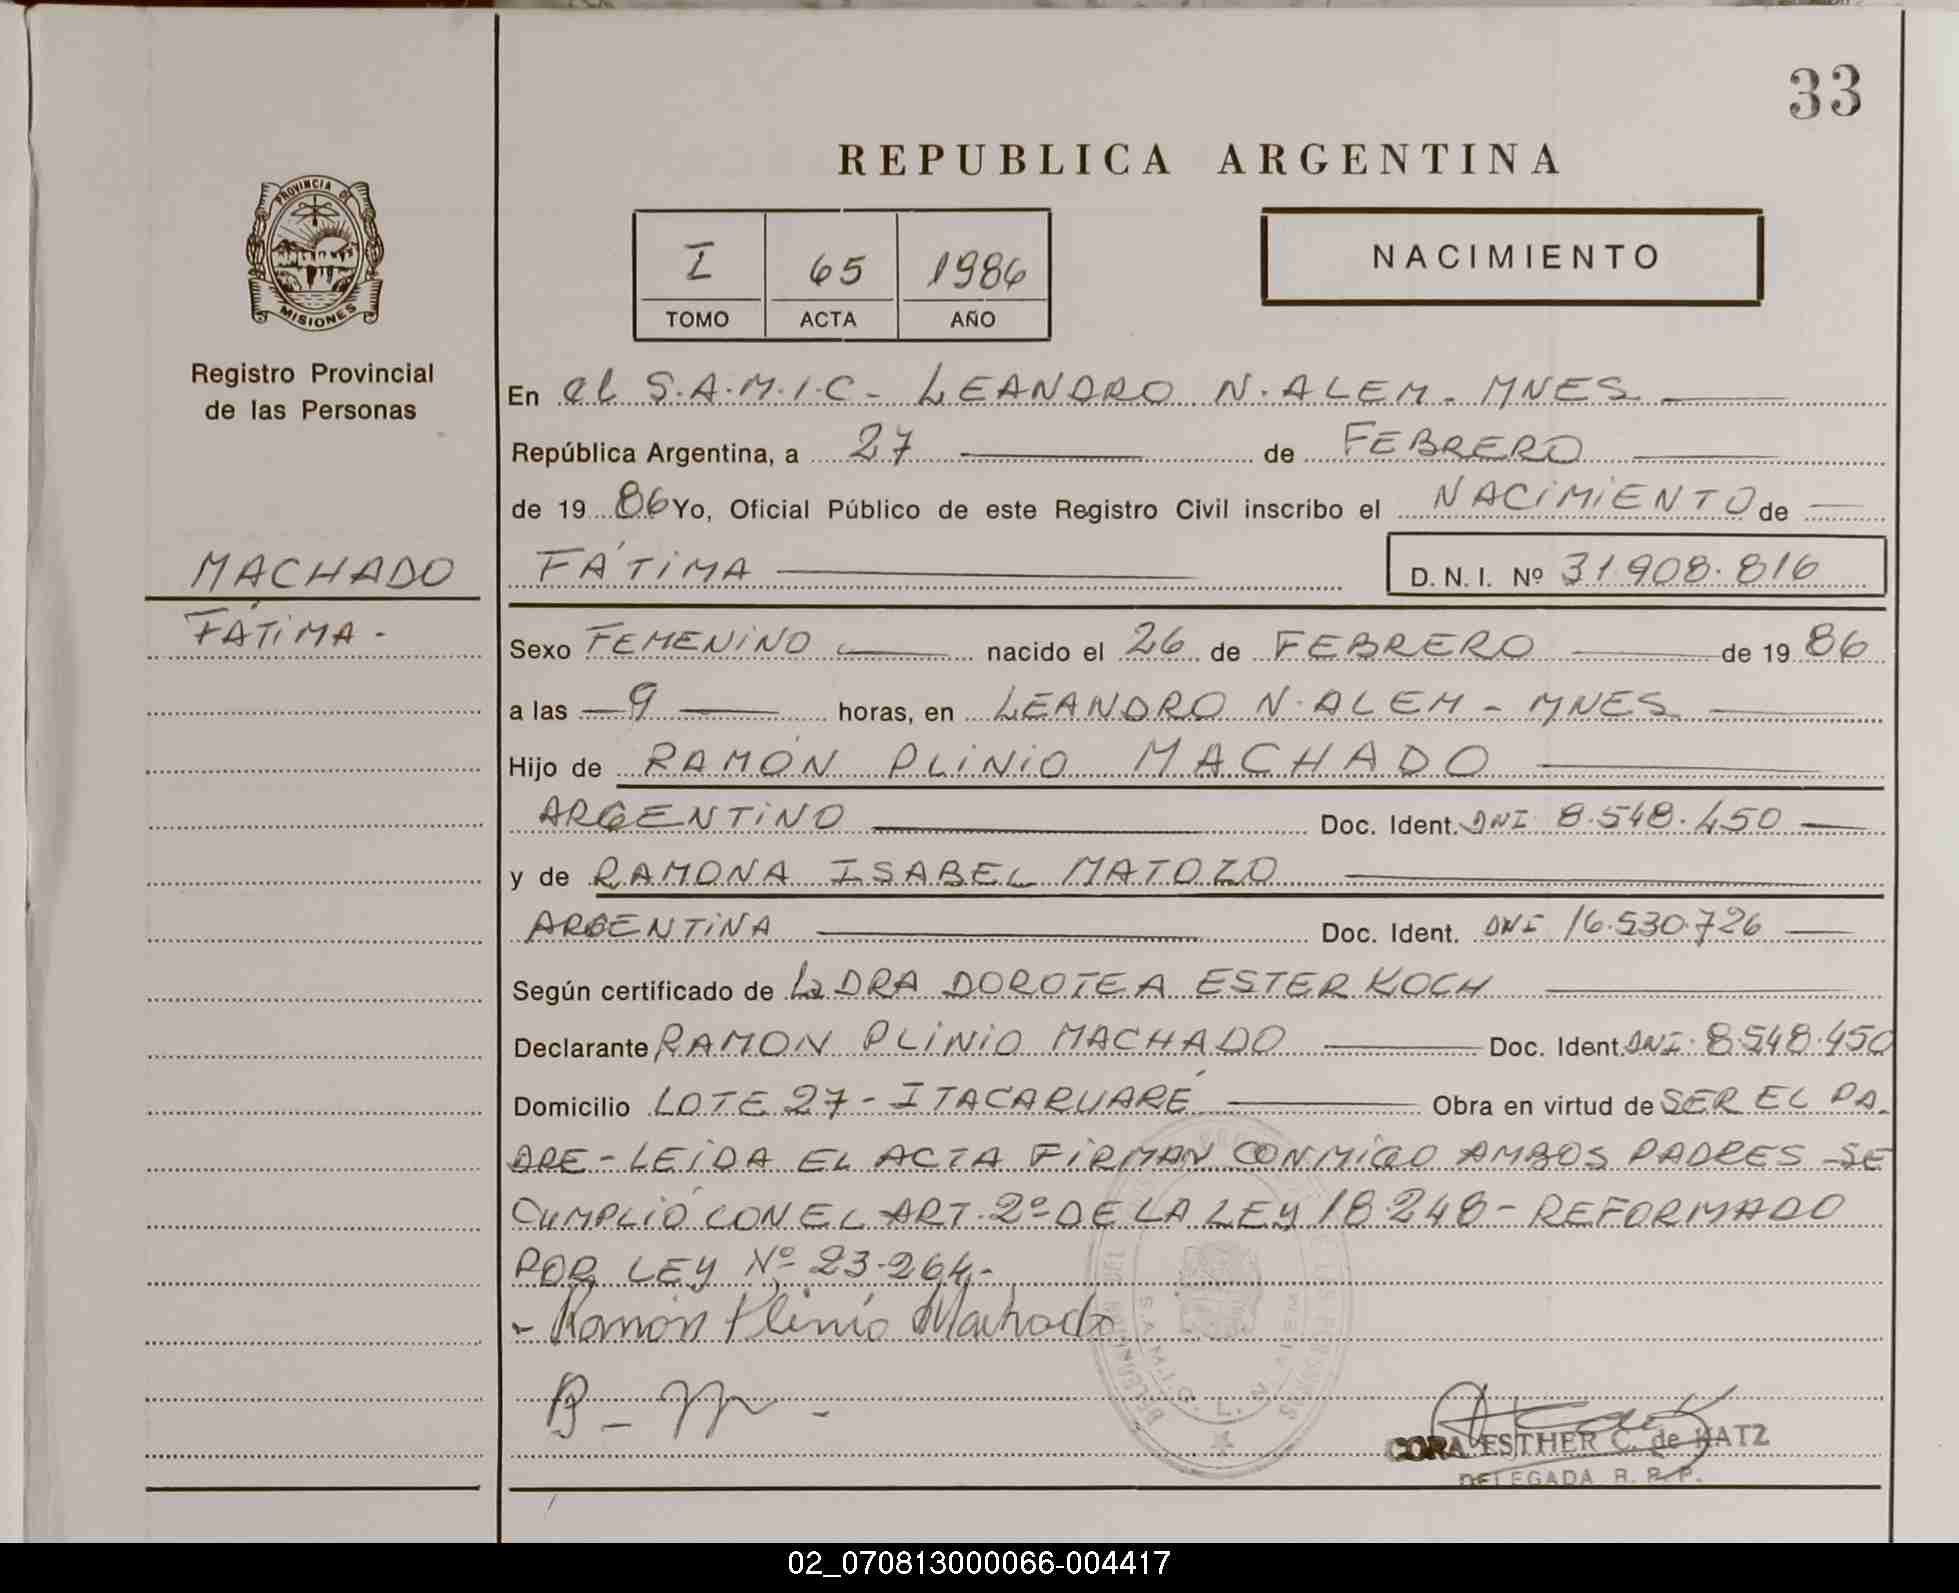 33
REPUBLICA ARGENTINA
PROVINCIA DE
MISIONES
Registro Provincial
de las Personas
I 65 1986
TOMO ACTA AÑO
NACIMIENTO
En el S.A.M.I.C - LEANDRO N. ALEM - MNES
República Argentina, a 27 de FEBRERO
de 19 86 Yo, Oficial Público de este Registro Civil inscribo el NACIMIENTO de
FÁTIMA D. N. I. Nº 31.908.816
MACHADO
FÁTIMA -
Sexo FEMENINO nacido el 26 de FEBRERO de 19 86
a las 9 horas, en LEANDRO N. ALEM - MNES
Hijo de RAMÓN PLINIO MACHADO
ARGENTINO Doc. Ident. DNI 8.548.450
y de RAMONA ISABEL MATOZO
ARGENTINA Doc. Ident. DNI 16.530.726
Según certificado de La DRA DOROTEA ESTER KOCH
Declarante RAMON PLINIO MACHADO Doc. Ident. DNI. 8.548.450
Domicilio LOTE 27 - ITACARUARÉ Obra en virtud de SER EL PA.
DRE - LEIDA EL ACTA FIRMAN CONMIGO AMBOS PADRES - SE
CUMPLIÓ CON EL ART. 2º DE LA LEY 18.248 - REFORMADO
POR LEY Nº 23.264.-
- Ramón Plinio Machado
CORA ESTHER C. de KATZ
DELEGADA R. P. P.
02_070813000066-004417